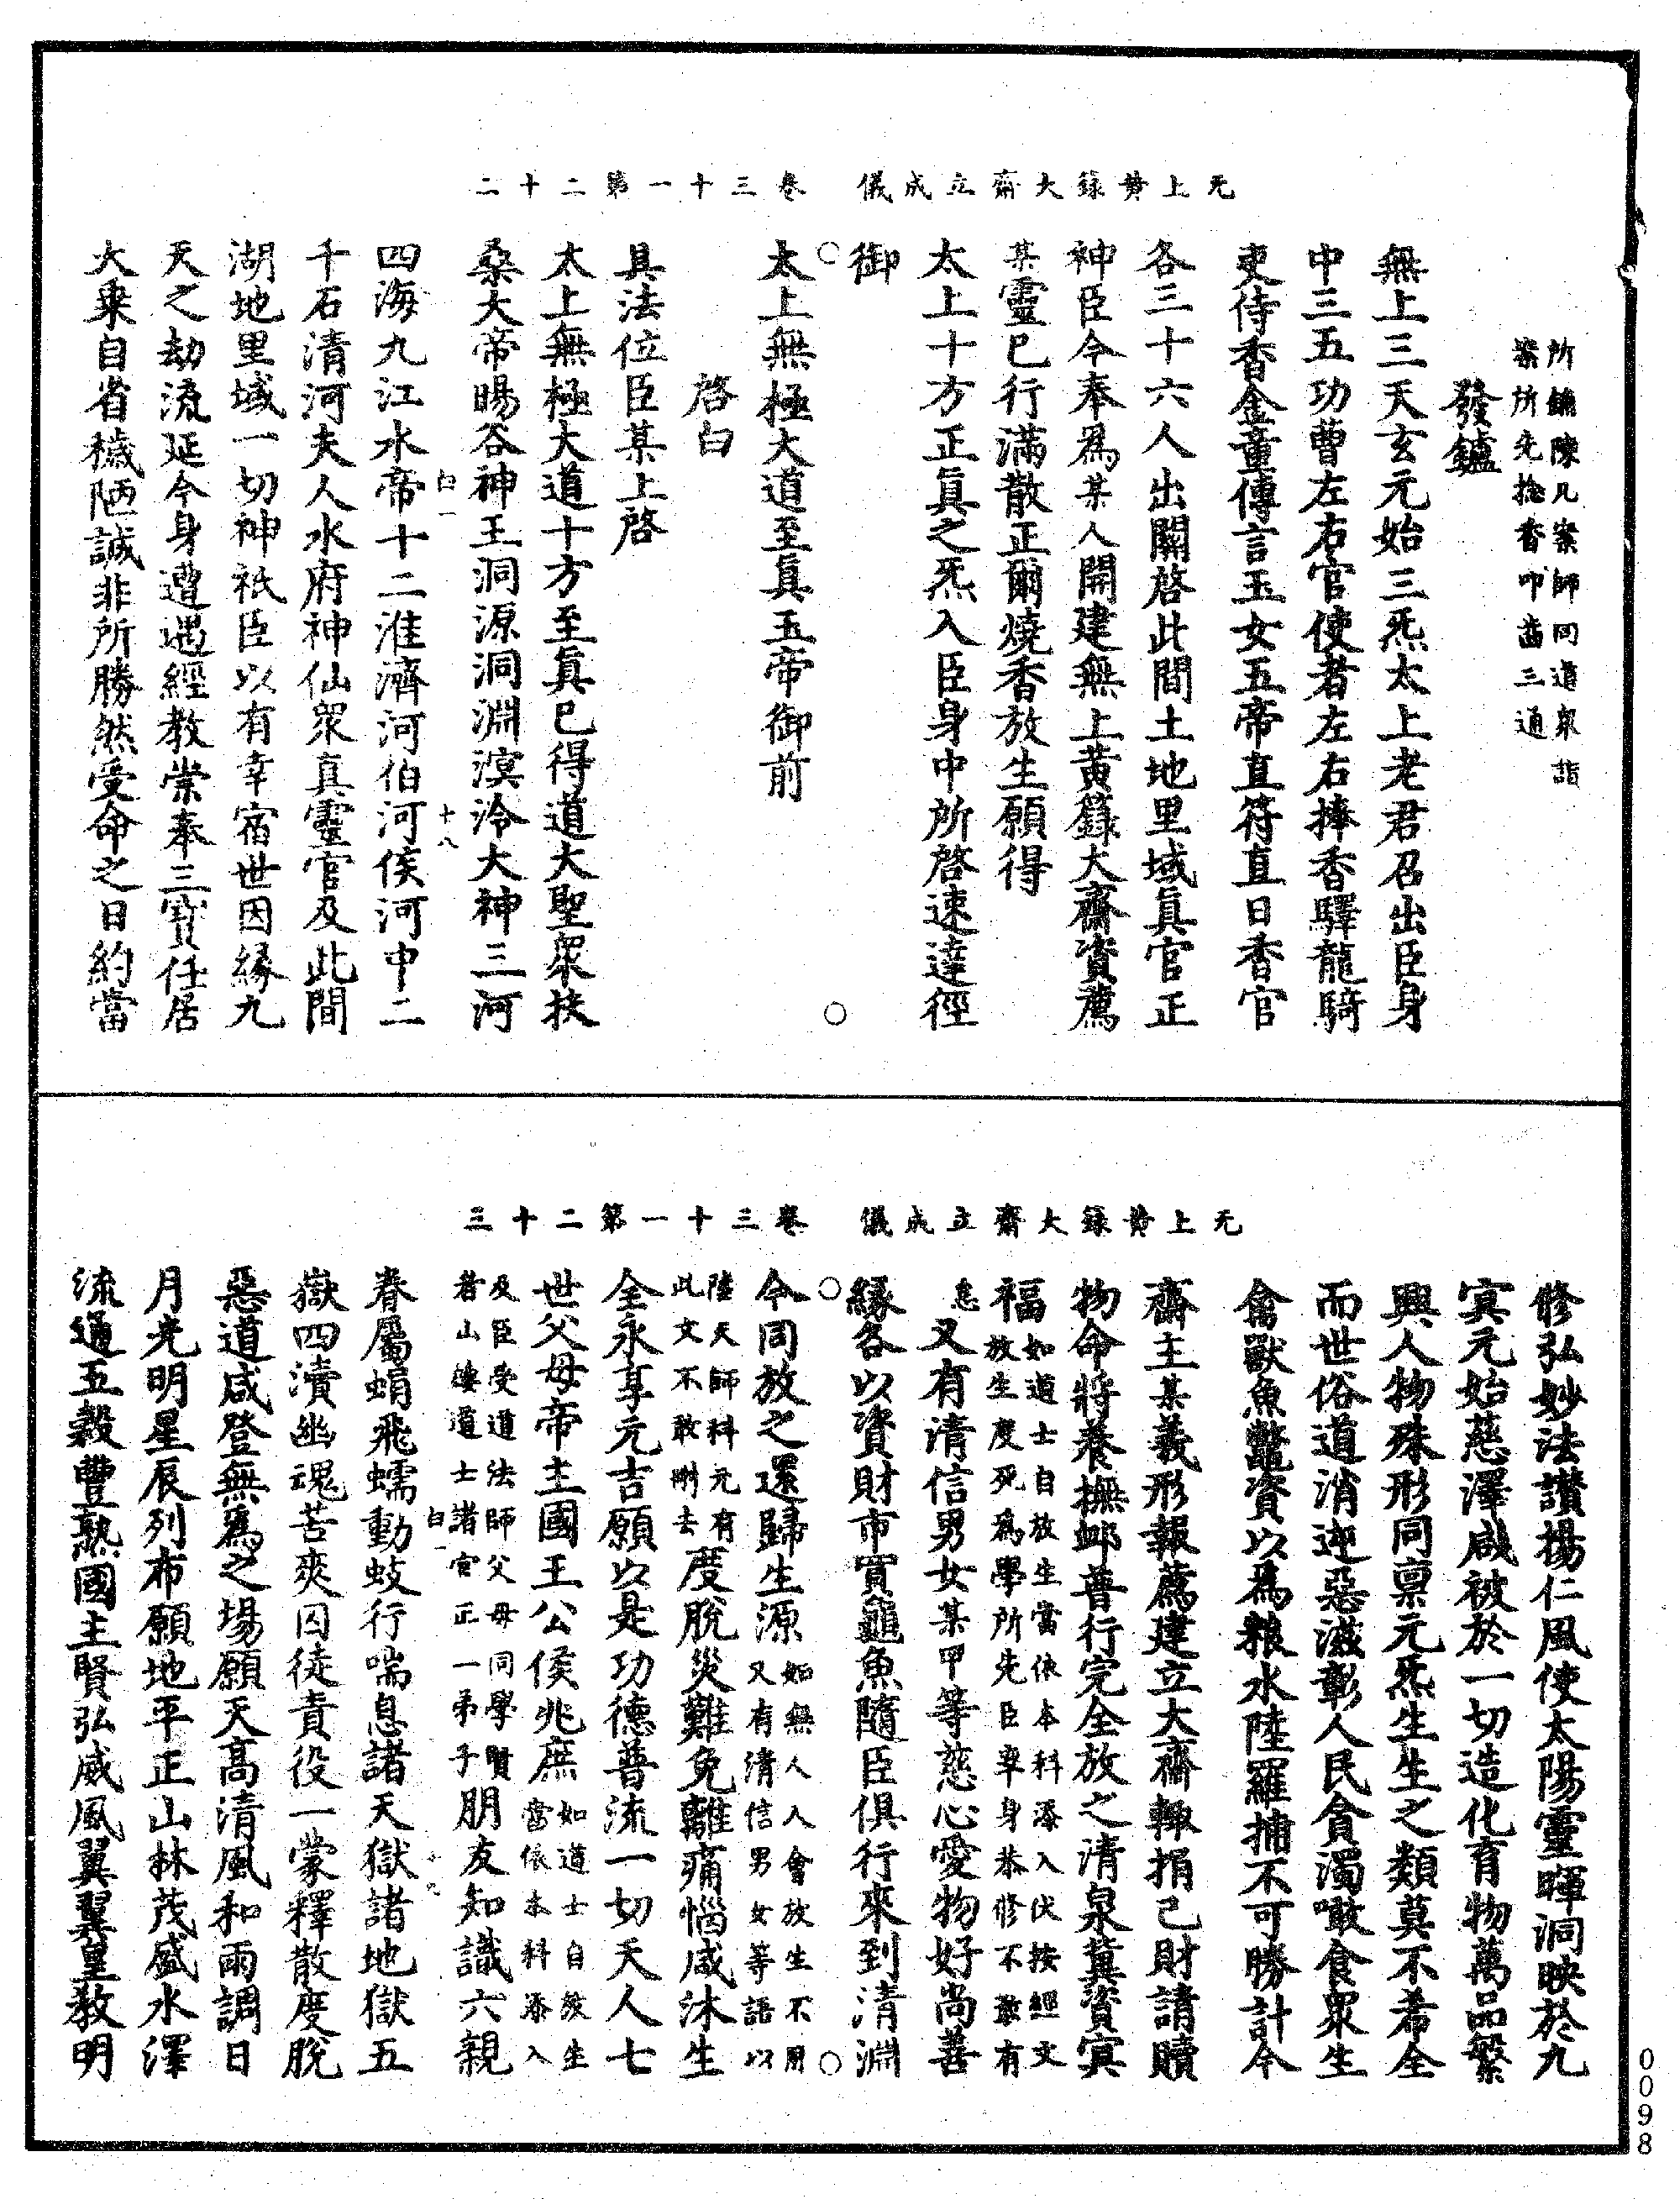 无上黃籙大齋立成儀　卷三十一第二十二
所鋪陳几案師同道衆詣
案所先捻香叩齒三通
發鑪
無上三天玄元始三炁太上老君召出臣身
中三五功曹左右官使者左右捧香驛龍騎
吏侍香金童傳言玉女五帝直符直日香官
各三十六人出關啓此間土地里域眞官正
神臣今奉爲某人開建無上黃籙大齋資薦
某靈已行滿散正爾燒香放生願得
太上十方正眞之炁入臣身中所啓速達徑
御
太上無極大道至眞玉帝御前
啓白
具法位臣某上啓
太上無極大道十方至眞已得道大聖衆扶
桑大帝暘谷神王洞源洞淵溟泠大神三河
四海九江水帝十二淮濟河伯河侯河中二
白一　十八
千石清河夫人水府神仙衆真靈官及此間
湖地里域一切神祇臣以有幸宿世因緣九
天之劫流延今身遭遇經教崇奉三寳任居
大乗自省穢陋誠非所勝然受命之日約當
无上黃籙大齋立成儀　卷三十一第二十三
修弘妙法讃揚仁風使太陽靈暉洞映於九
冥元始慈澤咸被於一切造化育物萬品繁
興人物殊形同禀元炁生生之類莫不希全
而世俗道消迎惡滋彰人民貪濁噉食衆生
禽獸魚鼈資以爲粮水陸羅捕不可勝計今
齋主某義形報薦建立大齋輙捐己財請贖
物命將養撫邺普行完全放之清泉冀資冥
福如道士自放生當依本科添入伏按經文
放生度死爲學所先臣率身恭修不敢有
怠又有清信男女某甲等慈心愛物好尚善
緣各以資財市買龜魚隨臣俱行來到清淵
今同放之還歸生源如無人入會放生不用
又有清信男女等語以
陸天師科元有
此文不敢刪去度脫災難免離痛惱咸沐生
全永享元吉願以是功德普流一切天人七
世父母帝主國王公侯兆庶如道士自放生
當依本科添入
及臣受道法師父母同學賢
者山棲道士諸官正一弟子朋友知識六親
白一　十九
眷屬蜎飛蠕動蚑行喘息諸天獄諸地獄五
嶽四瀆幽魂苦爽囚徒責役一蒙釋散度脫
惡道咸登無爲之場願天高清風和雨調日
月光明星辰列布願地平正山林茂盛水澤
流通五穀豐熟國主賢弘威風翼翼皇教明
0098